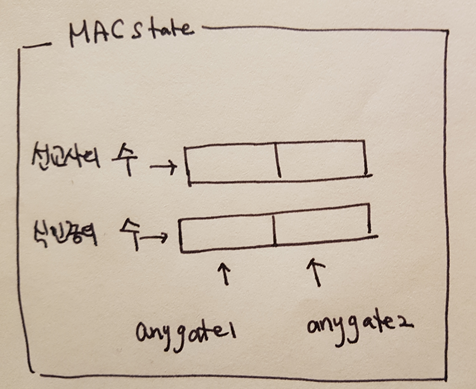 MACstate
선교사의 수 →
식인종의 수 →
↑ ↑
anygate1 anygate2